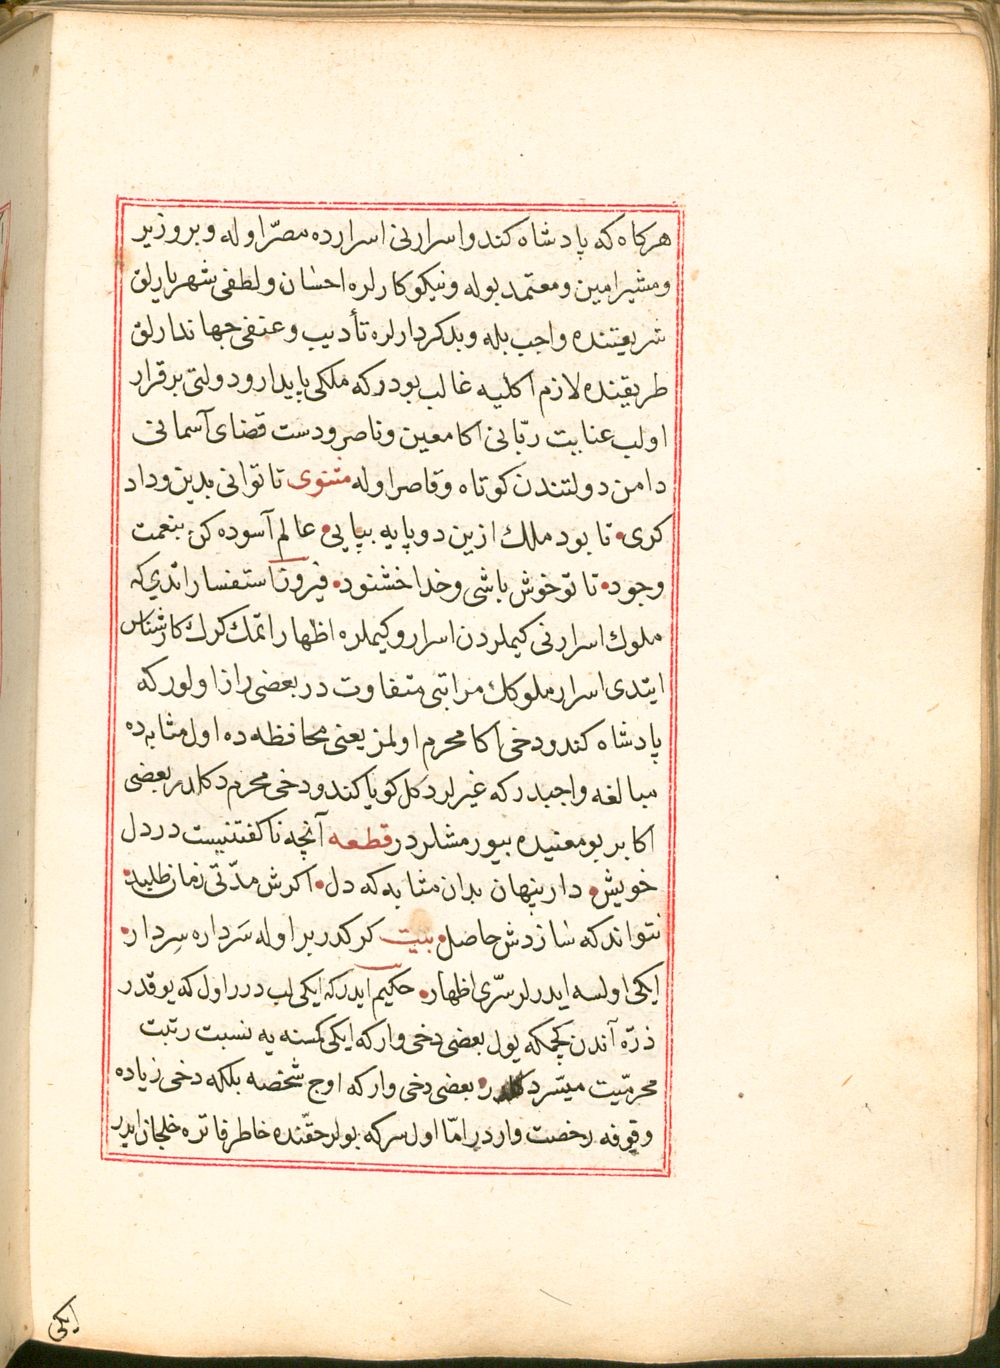 هركاه كه پادشاه كندو اسرارنى اسرارده مصرّ اوله و بر وزير
و مشير امين و معتمد بوله و نيكوكارلره احسان و لطفى شهريارلق
شريعتنده واجب بله و بدكردارلره تأديب و عنفى جهاندارلق
طريقنده لازم اكليه غالب بودركه ملكى پايدار و دولتى برقرار
اولب عنايت ربّانى اكا معين و ناصر و دست قضاى آسمانى
دامن دولتندن كوتاه و قاصر اوله مثنوى تا توانى بدين و داد
كرى• تا بود ملك ازين دو پايه بپايى• عالم آسوده كن بنعمت
وجود• تا تو خوش باشى و خدا خشنود• فيروز استفسار اتدي كه
ملوك اسرارنى كيملردن اسرار و كيملره اظهار اتمك كرك كارشناس
ايتدى اسرار ملوكك مراتبى متفاوتدر بعضى راز اولوركه
پادشاه كندو دخى اكا محرم اولمز يعنى محافظه ده اول مثابه ده
مبالغه واجبدركه غيرلر دكل كويا كندو دخى محرم دكلدر بعضى
اكابر بو معنيده بيورمشلردر قطعه آنچه ناكفتنيست در دل
خويش• دار پنهان بدان مثابه كه دل• اكرش مدّتى زمان طلبد•
نتواند كه سازدش حاصل• بيت كركدر بر اوله سَرداره سِردار•
ايكى اولسه ايدرلر سرّى اظهار• حكيم ايدركه ايكى لب درر اول كه يوقدر
ذرّه آندن كچمكه يول بعضى دخى واركه ايكى كمسنه يه نسبت رتبت
محرميّت ميسّر دكلدر• بعضى دخى واركه اوج شخصه بلكه دخى زياده
وقوفه رخصت واردر امّا اول سركه بولر حقّنده خاطر فاتره خلجان ايدر
ايكى